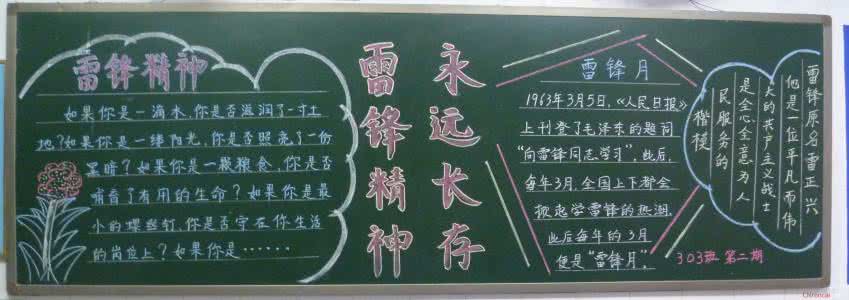 雷锋精神
如果你是一滴水,你是否滋润了一寸土
地?如果你是一缕阳光,你是否照亮了一份
黑暗?如果你是一颗粮食,你是否
哺育了有用的生命?如果你是最
小的螺丝钉,你是否守在你生活
的岗位上?如果你是······
雷锋精神
永远长存
雷锋月
1963年3月5日,《人民日报》
上刊登了毛泽东的题词
“向雷锋同志学习”,此后,
每年3月,全国上下都会
掀起学雷锋的热潮,
此后每年的3月
便是“雷锋月”。
雷锋原名雷正兴
他是一位平凡而伟
大的共产主义战士
是全心全意为人
民服务的
楷模
303班 第二期